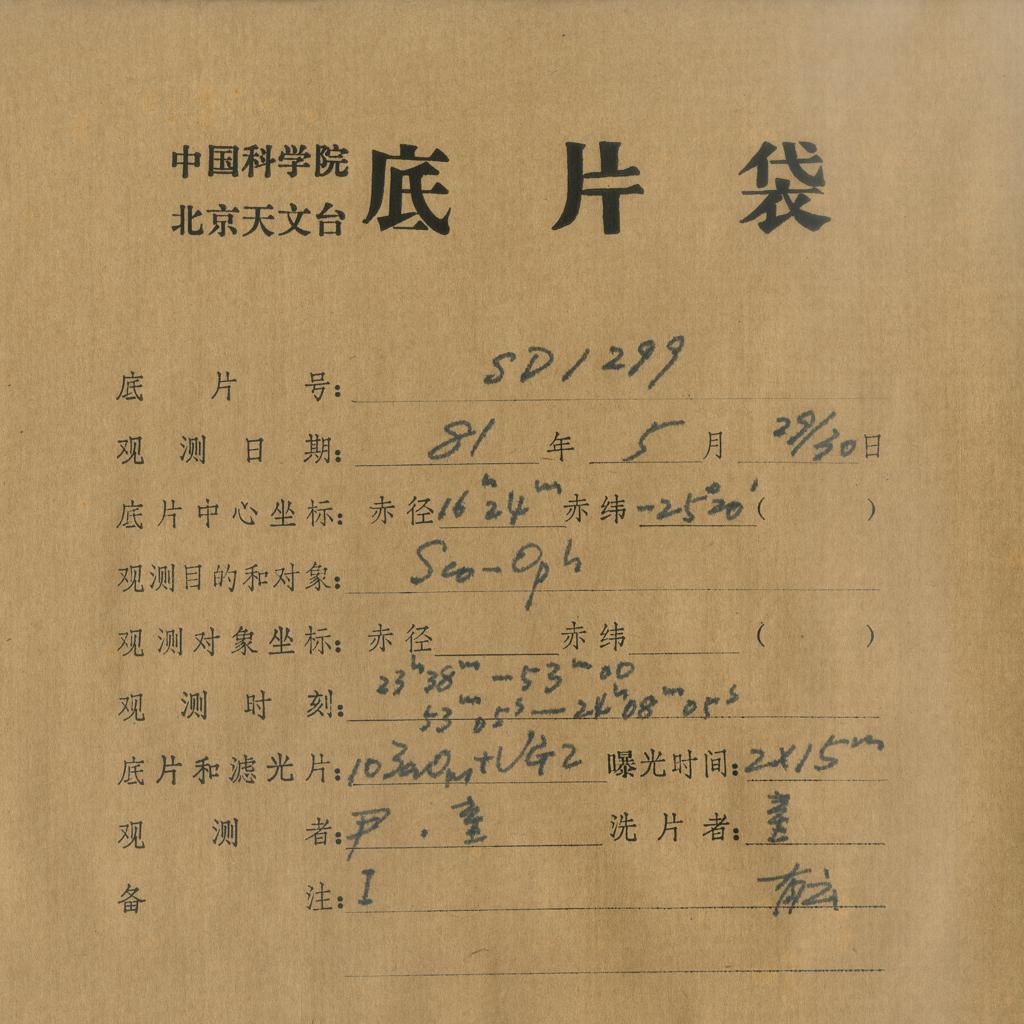 中国科学院
北京天文台
底片袋
底片号: SD1299
观测日期: 81年 5月 29/30日
底片中心坐标: 赤径 16h24m 赤纬 -25°20′ ( )
观测目的和对象: Sco-Oph
观测对象坐标: 赤径 赤纬 ( )
观测时刻: 23h38m-53m00
53m05s-24h08m05s
底片和滤光片: 103aO+UG2 曝光时间: 2×15m
观测者: 尹. 洗片者:
备注: I 有云